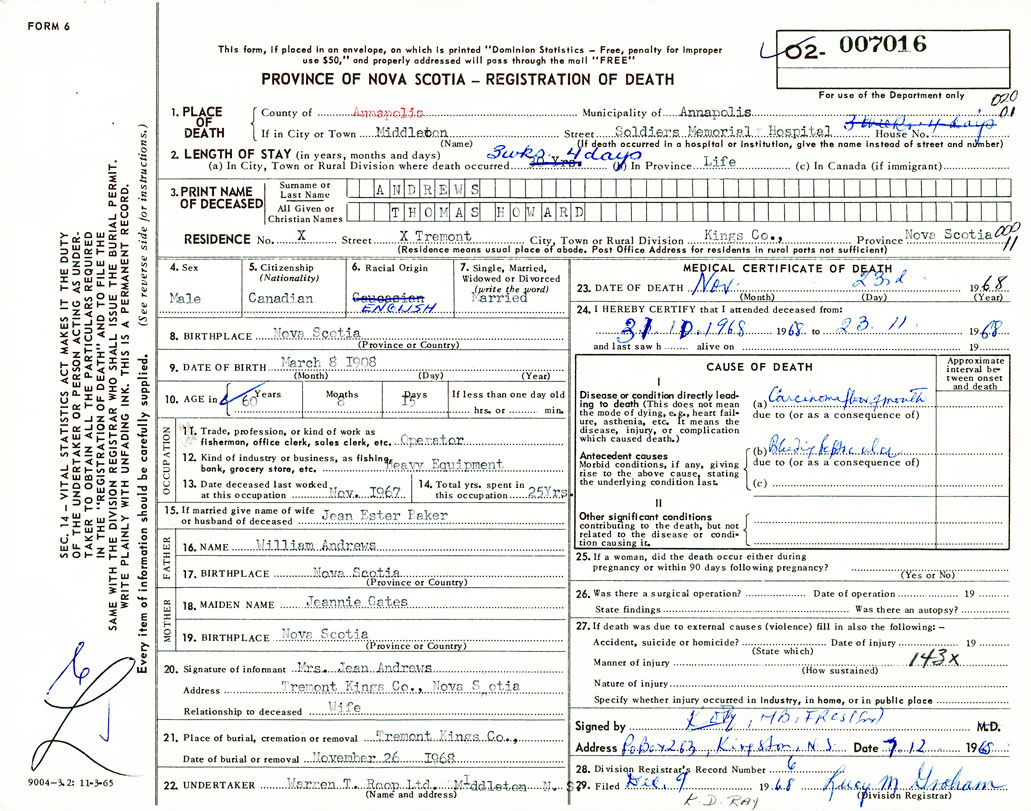 FORM 6
This form, if placed in an envelope, on which is printed "Dominion Statistics – Free, penalty for improper
use $50," and properly addressed will pass through the mail "FREE"
PROVINCE OF NOVA SCOTIA – REGISTRATION OF DEATH
02- 007016
For use of the Department only
020
01
1. PLACE OF DEATH
County of Annapolis Municipality of Annapolis
3 weeks 4 days
If in City or Town Middleton Street Soldiers Memorial Hospital House No.
(Name) (If death occurred in a hospital or institution, give the name instead of street and number)
2. LENGTH OF STAY (in years, months and days) 3 wks 4 days
(a) In City, Town or Rural Division where death occurred 30 Yrs. (b) In Province Life (c) In Canada (if immigrant)
3. PRINT NAME OF DECEASED
Surname or Last Name ANDREWS
All Given or Christian Names THOMAS HOWARD
RESIDENCE No. X Street X Tremont City, Town or Rural Division Kings Co., Province Nova Scotia
000
11
(Residence means usual place of abode. Post Office Address for residents in rural parts not sufficient)
4. Sex
Male
5. Citizenship (Nationality)
Canadian
6. Racial Origin
Caucasian
ENGLISH
7. Single, Married, Widowed or Divorced (write the word)
Married
8. BIRTHPLACE Nova Scotia
(Province or Country)
9. DATE OF BIRTH March 8 1908
(Month) (Day) (Year)
10. AGE in Years 60 Months 8 Days 15 If less than one day old
hrs. or min.
OCCUPATION
11. Trade, profession, or kind of work as
fisherman, office clerk, sales clerk, etc. Operator
12. Kind of industry or business, as fishing,
bank, grocery store, etc. Heavy Equipment
13. Date deceased last worked
at this occupation Nov. 1967
14. Total yrs. spent in
this occupation 25Yrs.
15. If married give name of wife
or husband of deceased Jean Ester Baker
FATHER
16. NAME William Andrews
17. BIRTHPLACE Nova Scotia
(Province or Country)
MOTHER
18. MAIDEN NAME Jeannie Gates
19. BIRTHPLACE Nova Scotia
(Province or Country)
20. Signature of informant Mrs. Jean Andrews
Address Tremont Kings Co., Nova S otia
Relationship to deceased Wife
21. Place of burial, cremation or removal Tremont Kings Co.,
Date of burial or removal November 26 1968
22. UNDERTAKER Warren T. Roop Ltd. Middleton N. S.
(Name and address)
MEDICAL CERTIFICATE OF DEATH
23. DATE OF DEATH Nov. 23rd 1968
(Month) (Day) (Year)
24. I HEREBY CERTIFY that I attended deceased from:
31 10 1968 1968 to 23. 11. 1968
and last saw h alive on 19
CAUSE OF DEATH
Approximate interval between onset and death
I
Disease or condition directly leading to death (This does not mean the mode of dying, e.g., heart failure, asthenia, etc. It means the disease, injury, or complication which caused death.)
(a) Carcinoma floor of mouth
due to (or as a consequence of)
Antecedent causes
Morbid conditions, if any, giving rise to the above cause, stating the underlying condition last.
(b) Bleeding peptic ulcer
due to (or as a consequence of)
(c)
II
Other significant conditions
contributing to the death, but not related to the disease or condition causing it.
25. If a woman, did the death occur either during
pregnancy or within 90 days following pregnancy?
(Yes or No)
26. Was there a surgical operation? Date of operation 19
State findings Was there an autopsy?
27. If death was due to external causes (violence) fill in also the following: –
Accident, suicide or homicide? Date of injury 19
(State which)
Manner of injury 143x
(How sustained)
Nature of injury
Specify whether injury occurred in industry, in home, or in public place
Signed by MB, FRCS M.D.
Address P.O Box 263, Kingston, N.S Date 7.12 1968
28. Division Registrar's Record Number 6
29. Filed Dec. 9 1968 Lucy M Graham
(Division Registrar)
K.D. RAY
SEC. 14 – VITAL STATISTICS ACT MAKES IT THE DUTY
OF THE UNDERTAKER OR PERSON ACTING AS UNDER-
TAKER TO OBTAIN ALL THE PARTICULARS REQUIRED
IN THE "REGISTRATION OF DEATH" AND TO FILE THE
SAME WITH THE DIVISION REGISTRAR WHO SHALL ISSUE THE BURIAL PERMIT.
WRITE PLAINLY WITH UNFADING INK. THIS IS A PERMANENT RECORD.
Every item of information should be carefully supplied. (See reverse side for instructions.)
9004-3.2: 11-3-65